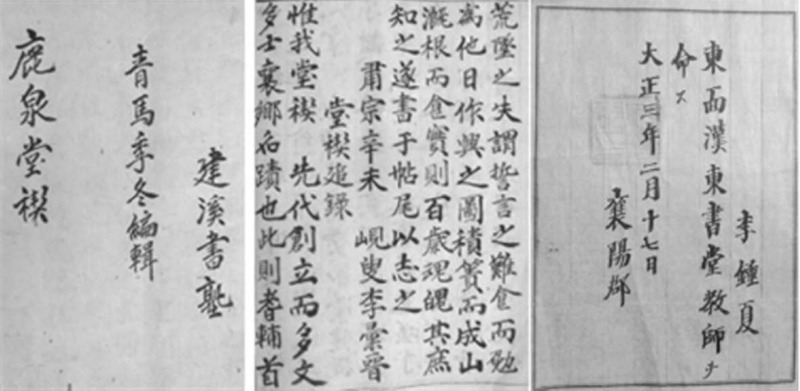 建溪書塾
青馬季冬編輯
鹿泉堂禊
荒墜之失謂誓言之難食而勉
爲他日作興之圖積簣而成山
漑根而食實則百歲魂魄其庶
知之遂書于帖尾以志之
肅宗辛未 峴叟李彙晉
堂禊追錄
惟我堂禊 先代創立而多文
多士襄鄉名蹟也此則耆輔首
李鍾夏
東面漢東書堂敎師ヲ
命ス
大正三年二月十七日
襄陽郡